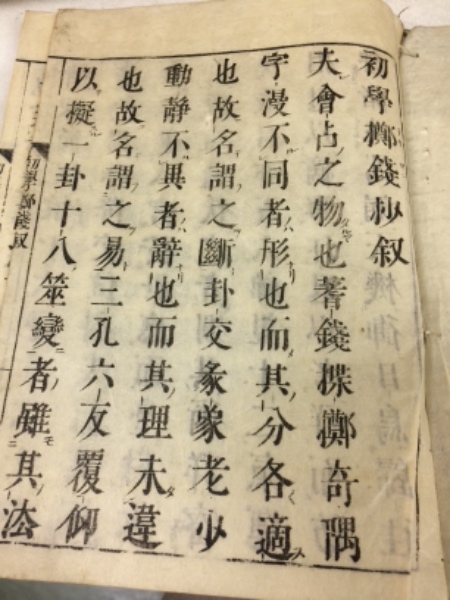 初學擲錢抄叙
夫會占之物也蓍錢揲擲奇隅
字漫不同者形也而其分各適
也故名謂之斷卦交彖象老少
動静不異者辭也而其理未違
也故名謂之易三孔六友覆仰
以擬一卦十八筮變者雖其法
初學擲錢叙